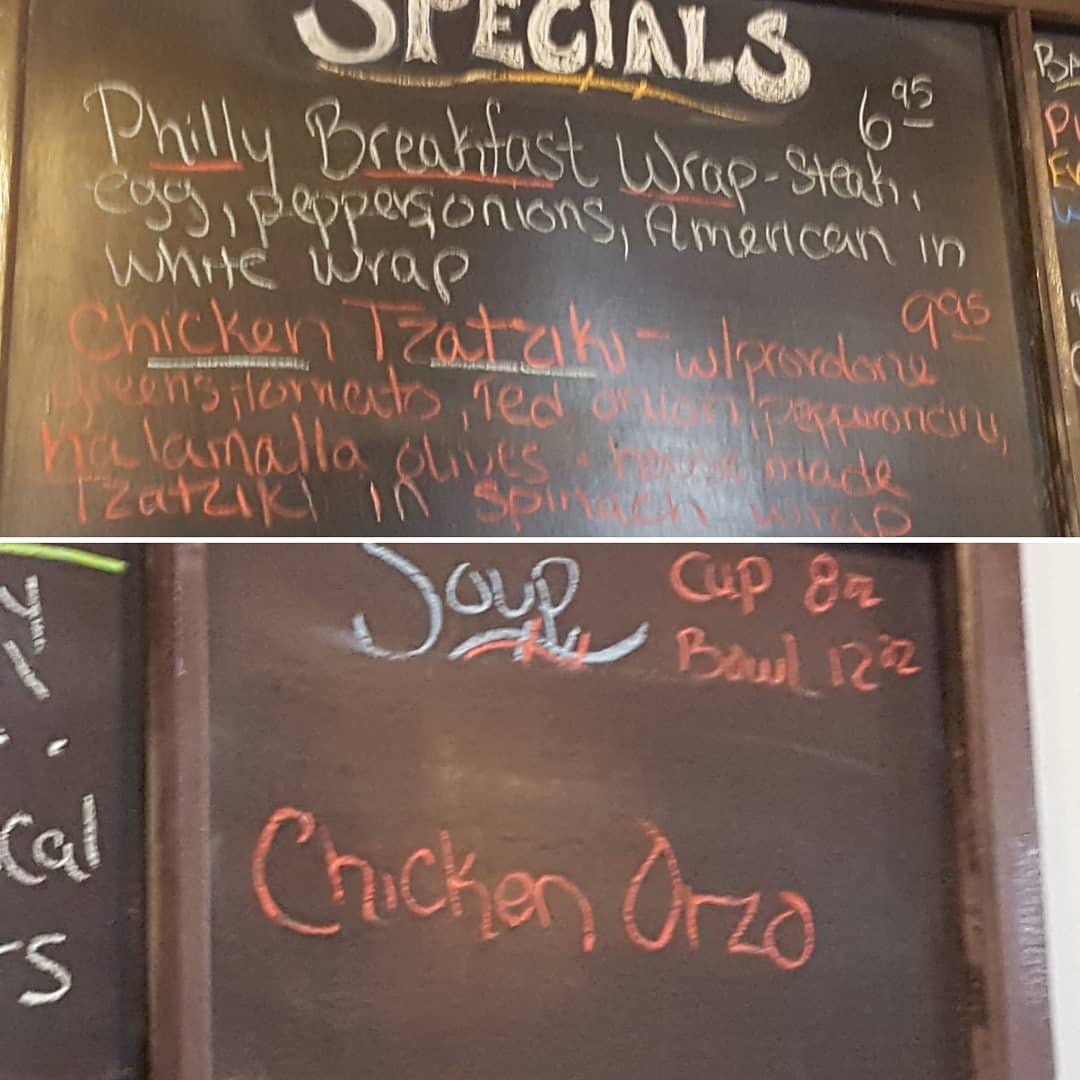 SPECIALS
6 95
Philly Breakfast Wrap - Steak,
egg, peppers, onions, American in
White Wrap
9 95
Chicken Tzatziki - w/provolone
greens, tomato, red onion, pepperoncini,
Kalamalla olives + house made
Tzatziki in Spinach wrap
BA
Soup
Cup 8oz
Bowl 12oz
Chicken Orzo
cal
rs